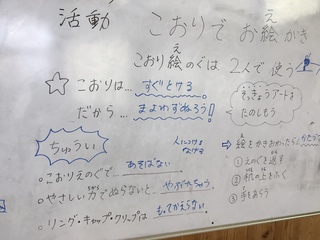 活動 こおりで お絵かき
え
こおり絵のぐは 2人で 使う
え
☆ こおりは… すぐとける
だから… まよわずぬろう!
アートを
たのしもう
ちゅうい
こおりえのぐで あそばない
やさしい力でぬらないと、やぶれちゃう
リング・キャップ・クリップは もってかえらない
⇨ 絵をかきおわったら…
①えのぐを返す
②机の上をふく
③手をあらう